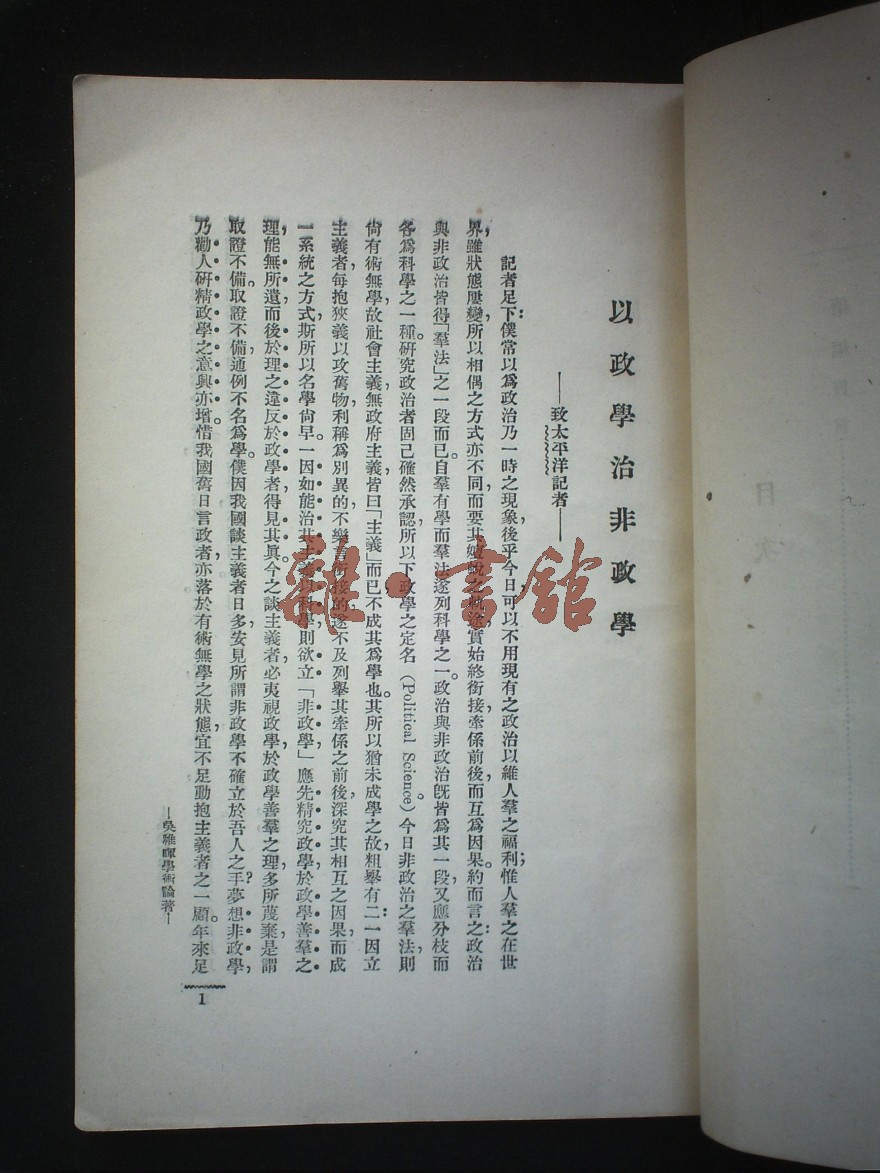 以政學治非政學
——致太平洋記者——
記者足下：僕常以爲政治乃一時之現象，後乎今日，可以不用現有之政治，以維人羣之福利；惟人羣之在世
界，雖狀態屢變，所以相偶之方式亦不同，而要其嬗蛻之軌途，實始終銜接，牽係前後，而互爲因果。約而言之：政治
與非政治，皆得「羣法」之一段而已。自羣有學，而羣法遂列科學之一。政治與非政治，旣皆爲其一段，又應分枝而
各爲科學之一種。研究政治者，固已確然承認，所以下政學之定名（Political Science）。今日非政治之羣法，則
尙有術無學，故社會主義，無政府主義，皆曰「主義」而已，不成其爲學也。其所以猶未成學之故，粗舉有二：一因立
主義者，每抱狹義以攻舊物，利稱爲別異的，不樂言銜接的，遂不及列舉其牽係之前後，深究其相互之因果，而成
一系統之方式，斯所以名學尙早。一因如能治其主義以科學，則欲立「非政學」，應先精究政學，於政學善羣之
理，能無所遺，而後於理之違反於政學者，得見其眞。今之談主義者，必夷視政學，於政學善羣之理，多所蔑棄，是謂
取證不備。取證不備，通例不名爲學。僕因我國談主義者日多，安見所謂非政學不確立於吾人之手？夢想非政學，
乃勸人研精政學之意興亦增。惜我國舊日言政者，亦落於有術無學之狀態，宜不足動抱主義者之一顧。年來足
—吳稚暉學術論著—
1
目次
雜·書館